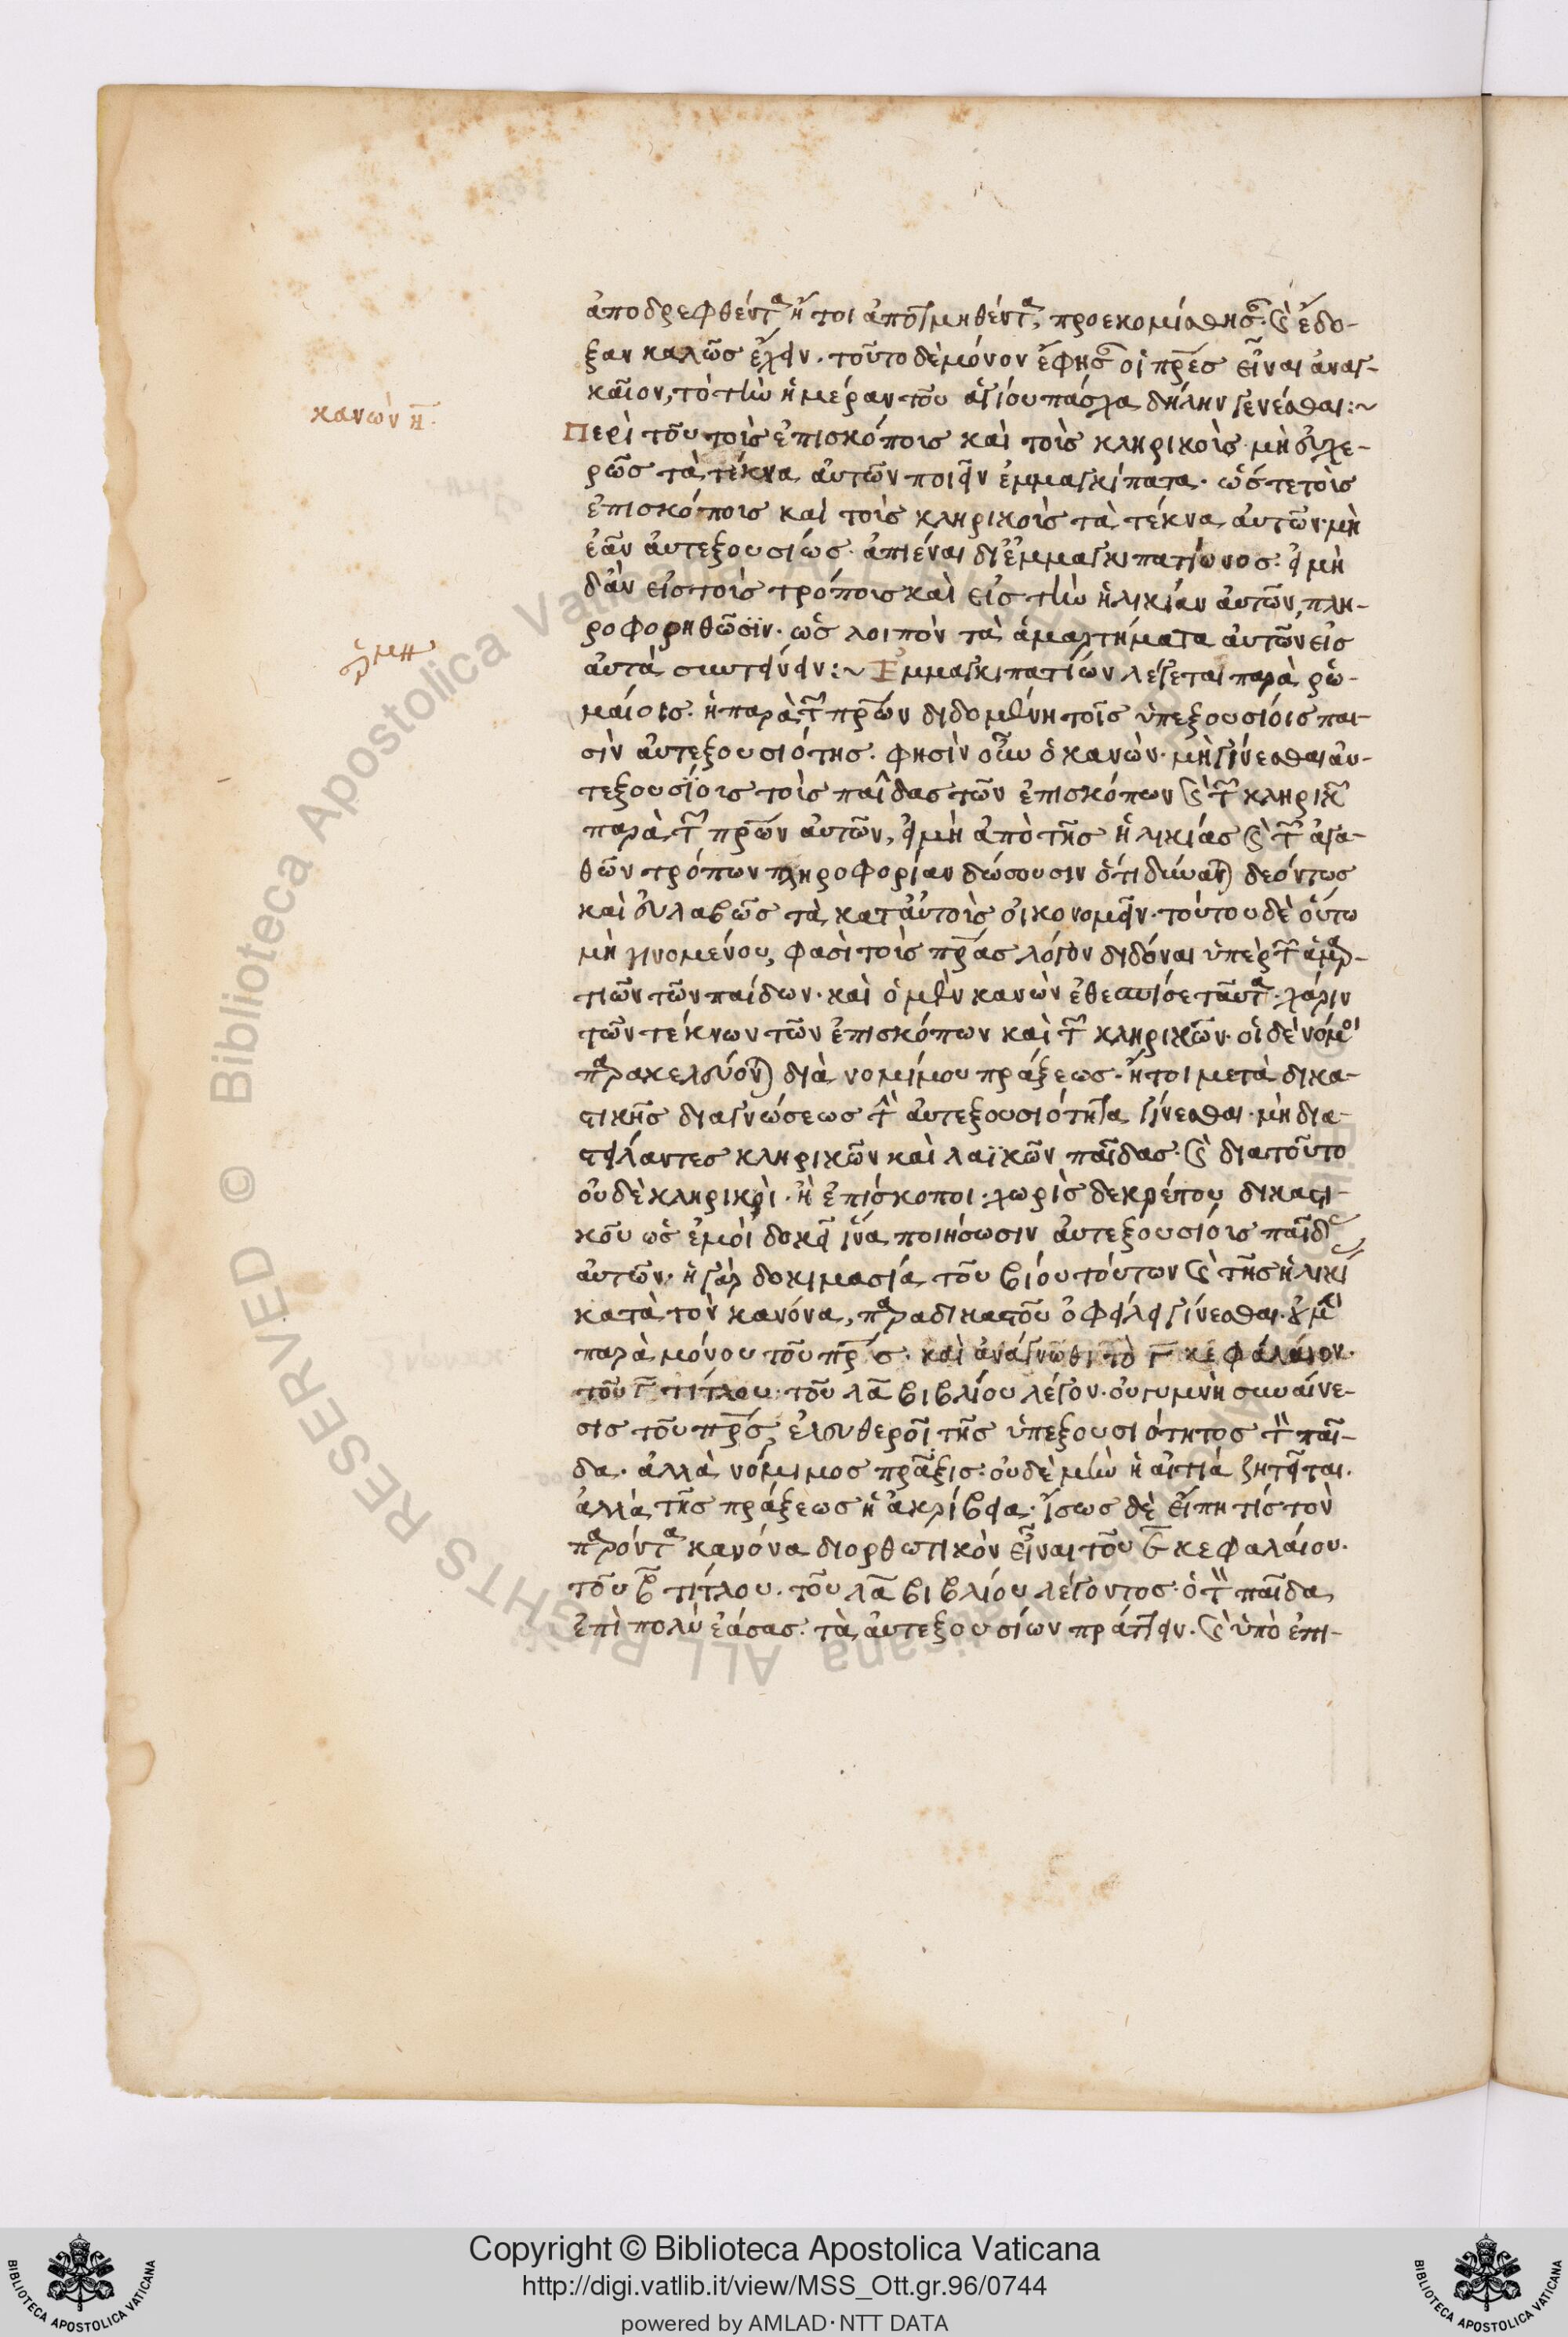 ἀποδρεφθέντα ἤτοι ἀποτμηθέντα, προεκομίσθησαν. καὶ ἔδο-
ξαν καλῶς ἔχειν. τοῦτο δὲ μόνον ἔφησαν οἱ πρ̅ες εἶναι ἀναγ-
καῖον, τὸ τὴν ἡμέραν τοῦ ἁγίου πάσχα δήλην γενέσθαι:~
κανὼν η̅.
Περὶ τοῦ τοὺς ἐπισκόπους καὶ τοὺς κληρικοὺς μὴ εὐχε-
ρῶς τὰ τέκνα αὐτῶν ποιεῖν ἐμμαγκίπατα. ὥστε τοὺς
ἐπισκόπους καὶ τοὺς κληρικοὺς τὰ τέκνα αὐτῶν μὴ
ἐᾶν αὐτεξουσίως ἀπιέναι δι' ἐμμαγκιπατίωνος. εἰ μὴ
δ' ἂν εἰς τοὺς τρόπους καὶ εἰς τὴν ἡλικίαν αὐτῶν, πλη-
ροφορηθῶσϊν. ὡς λοιπὸν τὰ ἁμαρτήματα αὐτῶν εἰς
αὐτὰ συντείνειν:~ Ἐμμαγκιπατίων λέγεται παρὰ ῥω-
μαίοις. ἡ παρὰ τῶν πρ̅ων διδομένη τοῖς ὑπεξουσίοις παι-
σὶν αὐτεξουσιότης. φησὶν οὖν ὁ κανὼν. μὴ γίνεσθαι αὐ-
τεξουσϊους τοὺς παῖδας τῶν ἐπισκόπων καὶ τῶν κληρικῶν
παρὰ τῶν πρ̅ων αὐτῶν, εἰ μὴ ἀπὸ τῆς ἡλικίας καὶ τῶν ἀγα-
θῶν τρόπων πληροφορίαν δώσουσιν ὅτι δύνανται δεόντως
καὶ εὐλαβῶς τὰ κατ' αὐτοὺς οἰκονομεῖν. τούτου δὲ οὕτω
μὴ γινομένου, φασὶ τοὺς πρ̅ας λόγον διδόναι ὑπὲρ τῶν ἁμαρ-
τιῶν τῶν παίδων. καὶ ὁ μὲν κανὼν ἐθεσπίσε ταῦτα. χάριν
τῶν τέκνων τῶν ἐπισκόπων καὶ τῶν κληρικῶν. οἱ δὲ νόμοι
παρακελεύονται διὰ νομίμου πράξεως. ἤτοι μετὰ δικα-
στικῆς διαγνώσεως τὴν αὐτεξουσιότητα γίνεσθαι. μὴ δια-
στείλαντες κληρικῶν καὶ λαϊκῶν παῖδας. καὶ διατοῦτο
οὐδὲ κληρικοὶ. ἢ ἐπίσκοποι. χωρὶς δεκρέτου δικαστι-
κοῦ ὡς ἐμοὶ δοκεῖ ἵνα ποιήσωσιν αὐτεξουσίους παῖδας
αὐτῶν. ἡ γὰρ δοκιμασία τοῦ βίου τούτων καὶ τῆς ἡλικίας
κατὰ τὸν κανόνα, παρα δικαστοῦ ὀφείλει γίνεσθαι. οὐ μὴν
παρὰ μόνου τοῦ πρ̅ς. καὶ ἀνάγνωθι τὸ γ̅ κεφάλαιον.
τοῦ γ̅ τίτλου. τοῦ λα̅ βιβλίου λέγον. οὐ γυμνὴ συναίνε-
σις τοῦ πρ̅ς, ἐλευθεροῖ τῆς ὑπεξουσιότητος τὸν παῖ-
δα. ἀλλὰ νόμιμος πρᾶξις. οὐδὲ μὴν ἡ αἰτία ζητεῖται.
ἀλλὰ τῆς πράξεως ἡ ἀκρίβεια. ἴσως δὲ εἴπη τίς τὸν
παρόντα κανόνα διορθωτικὸν εἶναι τοῦ ϛ̅ κεφαλαίου.
τοῦ β̅ τίτλου. τοῦ λα̅ βιβλίου λέγοντος. ὁ τὸν παῖδα,
ἐπὶ πολὺ ἐάσας. τὰ αὐτεξουσίων πράττειν. καὶ ὑπὸ ἐπι-
Copyright © Biblioteca Apostolica Vaticana
http://digi.vatlib.it/view/MSS_Ott.gr.96/0744
powered by AMLAD·NTT DATA
BIBLIOTECA APOSTOLICA VATICANA
BIBLIOTECA APOSTOLICA VATICANA